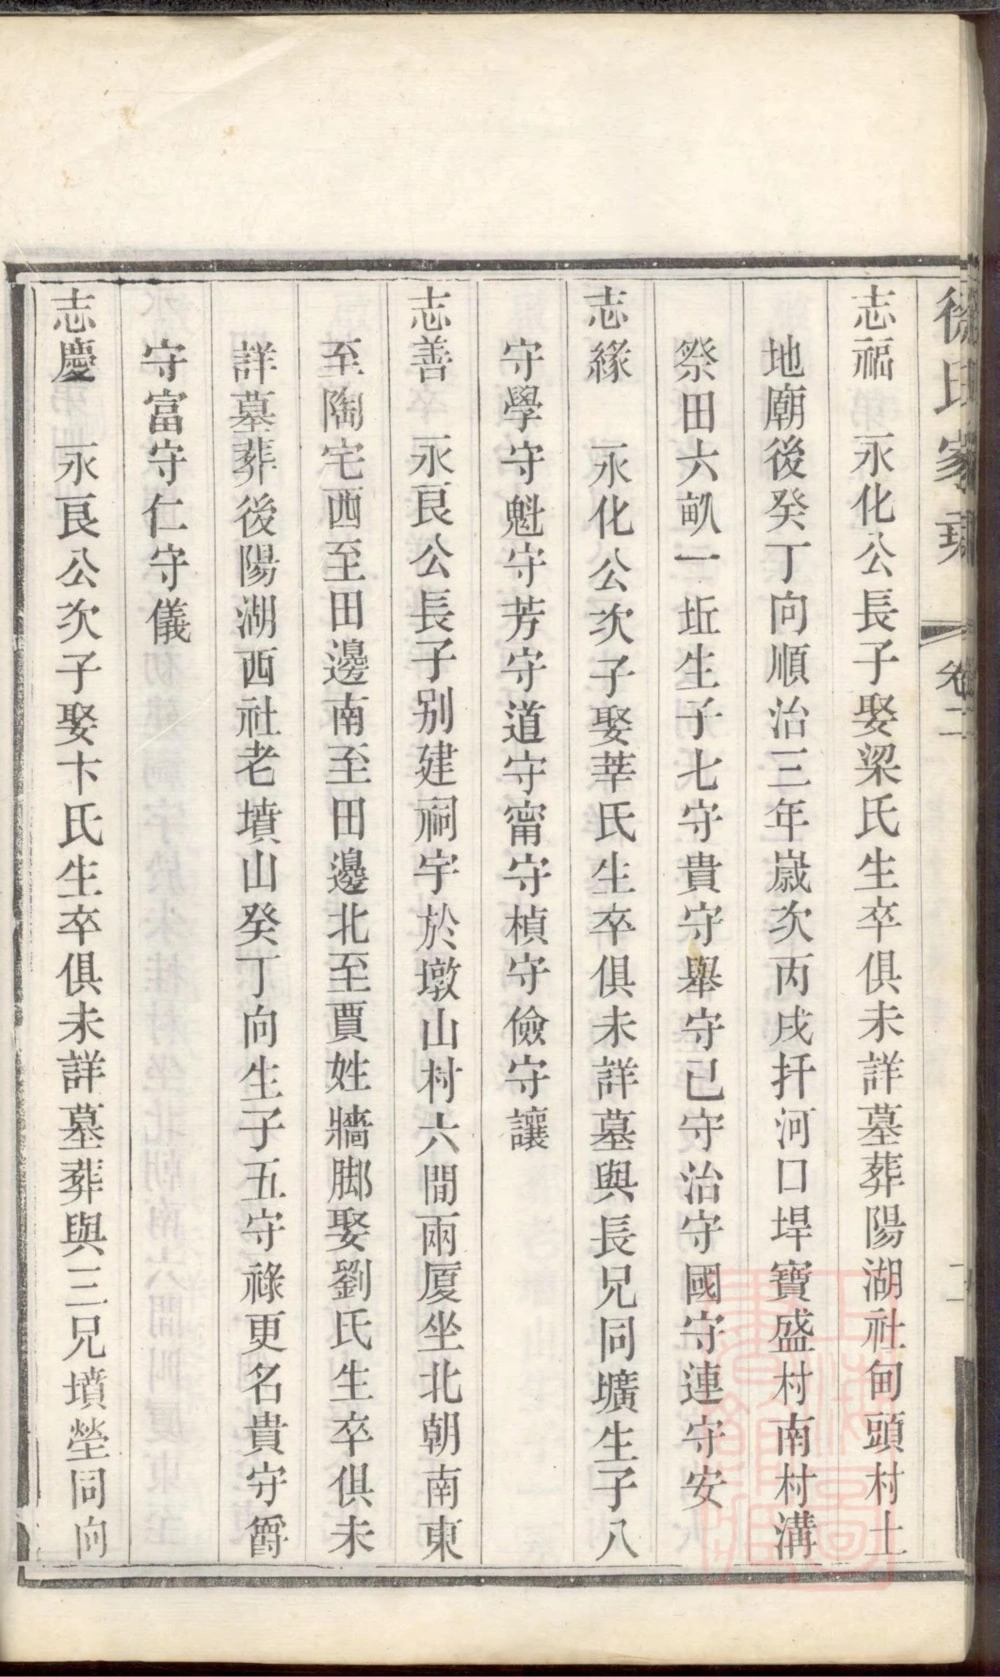 徐氏家乘 卷二
志福 永化公長子娶梁氏生卒俱未詳墓葬陽湖社甸頭村土
地廟後癸丁向順治三年歲次丙戌扦河口垾寶盛村南村溝
祭田六畝一坵生子七守貴守舉守已守治守國守連守安
志緣 永化公次子娶莘氏生卒俱未詳墓與長兄同壙生子八
守學守魁守芳守道守甯守楨守儉守讓
志善 永良公長子别建祠宇於墩山村六間兩厦坐北朝南東
至陶宅西至田邊南至田邊北至賈姓牆脚娶劉氏生卒俱未
詳墓葬後陽湖西社老墳山癸丁向生子五守祿更名貴守爵
守富守仁守儀
志慶 永良公次子娶卞氏生卒俱未詳墓葬與三兄墳塋同向